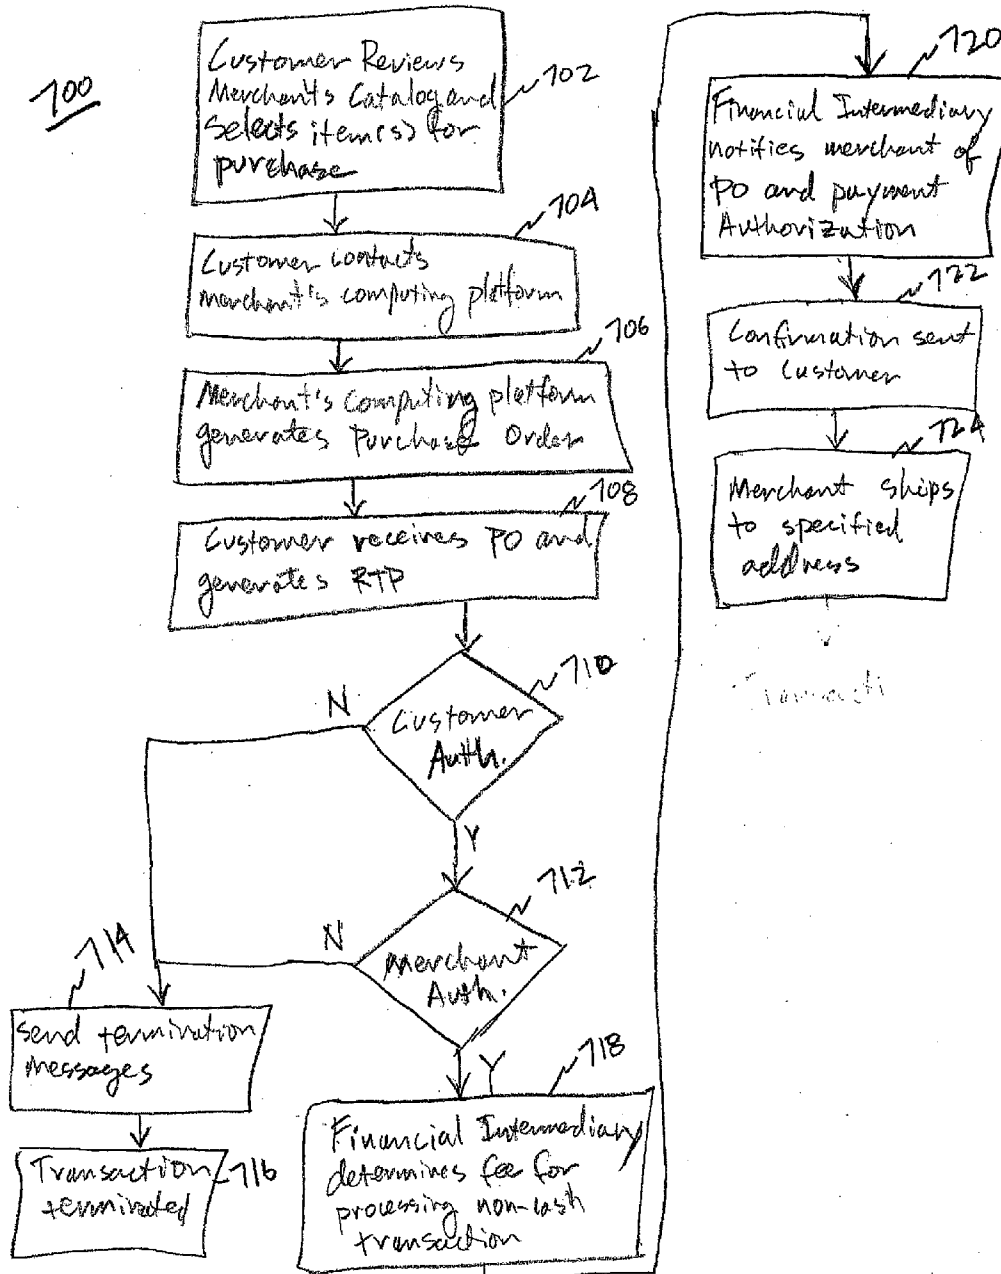 700
Customer Reviews
Merchants Catalog and
selects item(s) for
purchase
702
704
Customer contacts
merchant's computing platform
706
Merchant's computing platform
generates Purchase Order
708
Customer receives PO and
generates RTP
710
N
Customer
Auth.
Y
712
N
Merchant
Auth.
Y
714
send termination
messages
716
Transaction
terminated
718
Financial Intermediary
determines fee for
processing non-cash
transaction
720
Financial Intermediary
notifies merchant of
PO and payment
Authorization
722
Confirmation sent
to Customer
724
Merchant ships
to specified
address